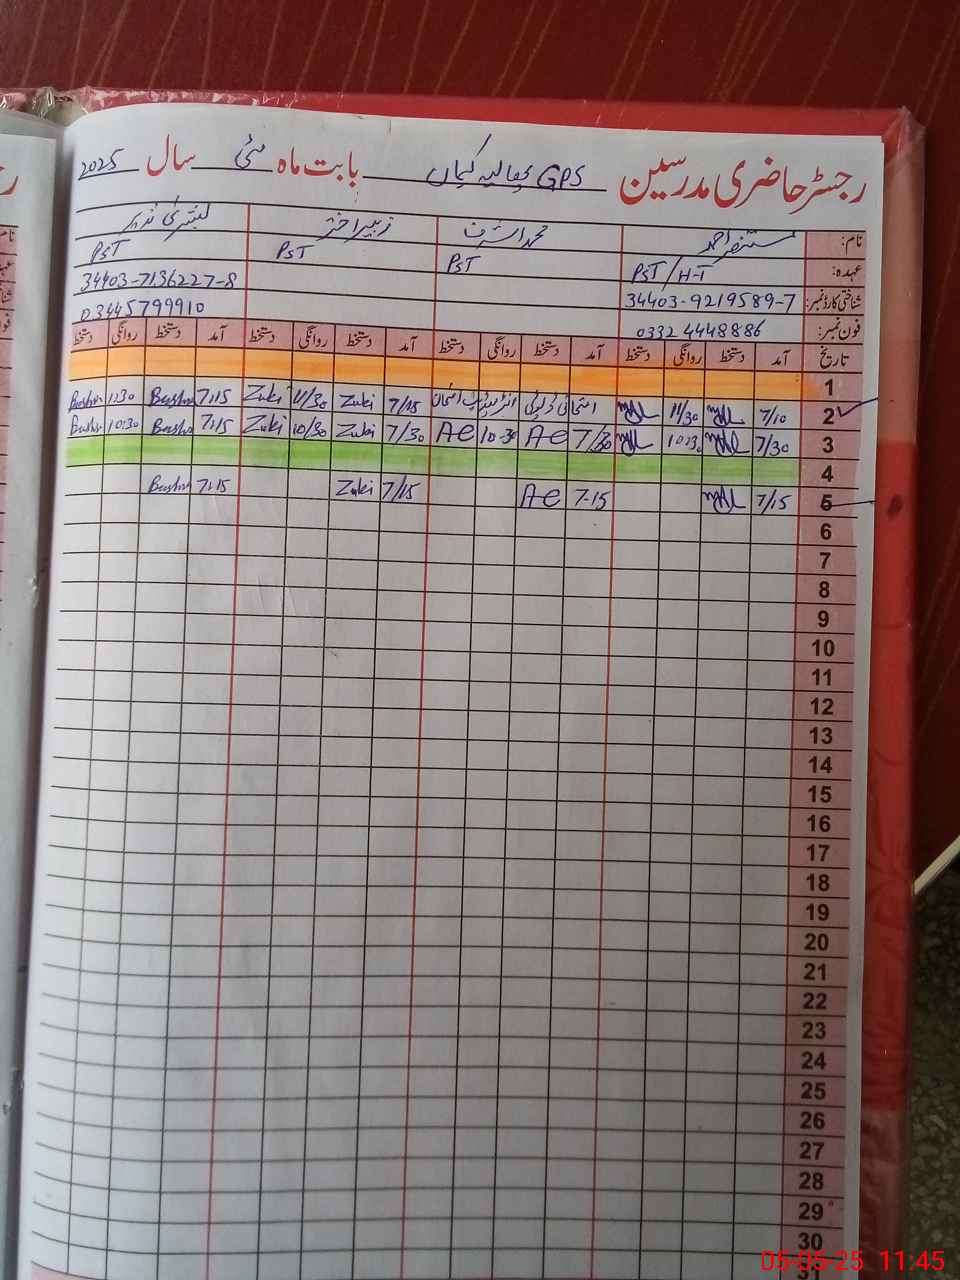 رجسٹر حاضری مدرسین GPS بھالیہ کیماں بابت ماہ مئی سال 2025
نام: مستنصر احمد محمد اشرف زبیر اختر بشری نذیر
عہدہ: PST/H-T PST PST PST
شناختی کارڈ نمبر: 34403-9219589-7 34403-7136227-8
فون نمبر: 0332 4448886 03445799910
تاریخ آمد دستخط روانگی دستخط آمد دستخط روانگی دستخط آمد دستخط روانگی دستخط آمد دستخط روانگی دستخط
1
2 7/10 11/30 امتحانی ڈیوٹی انٹرمیڈیٹ امتحان 7/15 Zuki 11/30 Zuki 7:15 Bushra 11:30 Bushra
3 7/30 10:30 7/30 Ae 10-30 Ae 7/30 Zuki 10/30 Zuki 7:15 Bushra 10:30 Bushra
4
5 7/15 7-15 Ae 7/15 Zuki 7:15 Bushra
6
7
8
9
10
11
12
13
14
15
16
17
18
19
20
21
22
23
24
25
26
27
28
29
30
31
05-05-25 11:45